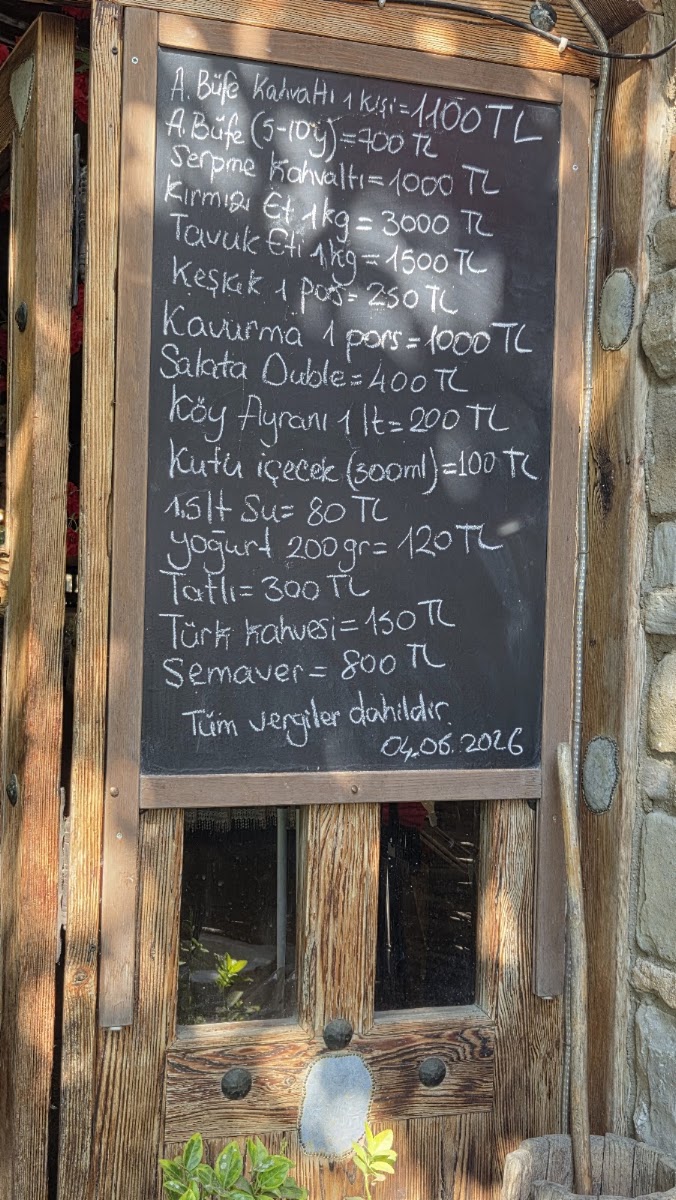 A. Büfe Kahvaltı 1 kişi=1100 TL
A. Büfe (5-10y)=700 TL
Serpme Kahvaltı=1000 TL
Kırmızı Et 1 kg = 3000 TL
Tavuk Eti 1 kg = 1500 TL
Keşkek 1 pos= 250 TL
Kavurma 1 pors=1000 TL
Salata Duble=400 TL
Köy Ayranı 1 lt=200 TL
Kutu içecek (300ml)=100 TL
1,5 lt Su= 80 TL
yoğurt 200 gr= 120 TL
Tatlı= 300 TL
Türk kahvesi= 150 TL
Semaver= 800 TL
Tüm vergiler dahildir.
04.06.2026